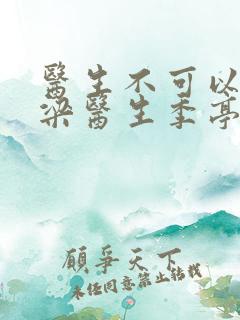 醫生不可以
梁醫生季亭
願爭天下
未任同意禁止转载